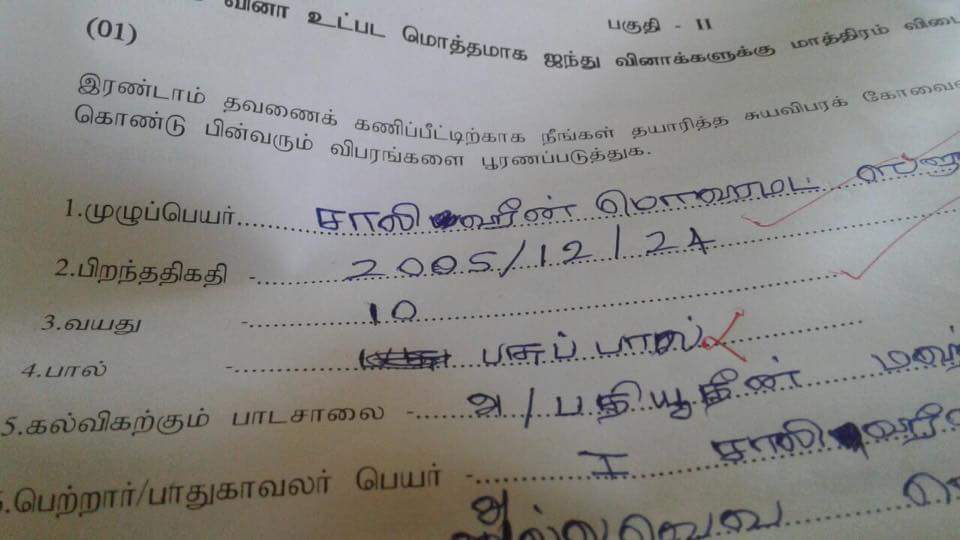 வினா உட்பட மொத்தமாக ஐந்து வினாக்களுக்கு மாத்திரம்
பகுதி - II
(01)
இரண்டாம் தவணைக் கணிப்பீட்டிற்காக நீங்கள் தயாரித்த சுயவிபரக்
கொண்டு பின்வரும் விபரங்களை பூரணப்படுத்துக.
1.முழுப்பெயர்.......... சாலிஹீன் மொஹமட்
2.பிறந்ததிகதி - 2005/12/24
3.வயது - 10
4.பால் - பசுப் பால்
5.கல்விகற்கும் பாடசாலை - அ/பதியூதீன்
பெற்றார்/பாதுகாவலர் பெயர் - I சாலி